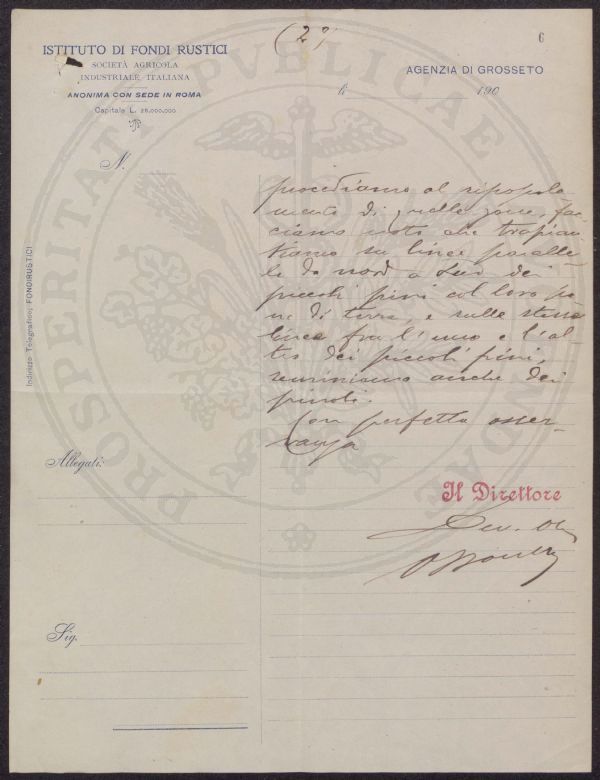 (2°)
6
ISTITUTO DI FONDI RUSTICI
SOCIETÀ AGRICOLA
INDUSTRIALE ITALIANA
ANONIMA CON SEDE IN ROMA
Capitale L. 28,000,000
AGENZIA DI GROSSETO
li 190
N.
procediamo al ripopola
mento di quelle zone, fac
ciamo noto che trapian
tiamo su linee paralle
le da nord a Sud dei
piccoli pini col loro pa
ne di terra, e sulle stesse
linee fra l'uno e l'al
tro dei piccoli pini,
seminiamo anche dei
pinoli.
Con perfetta osser
vanza
Indirizzo Telegrafico; FONDIRUSTICI
PROSPERITATI PVBLICAE
Allegati:
Il Direttore
Dev.
Sig.